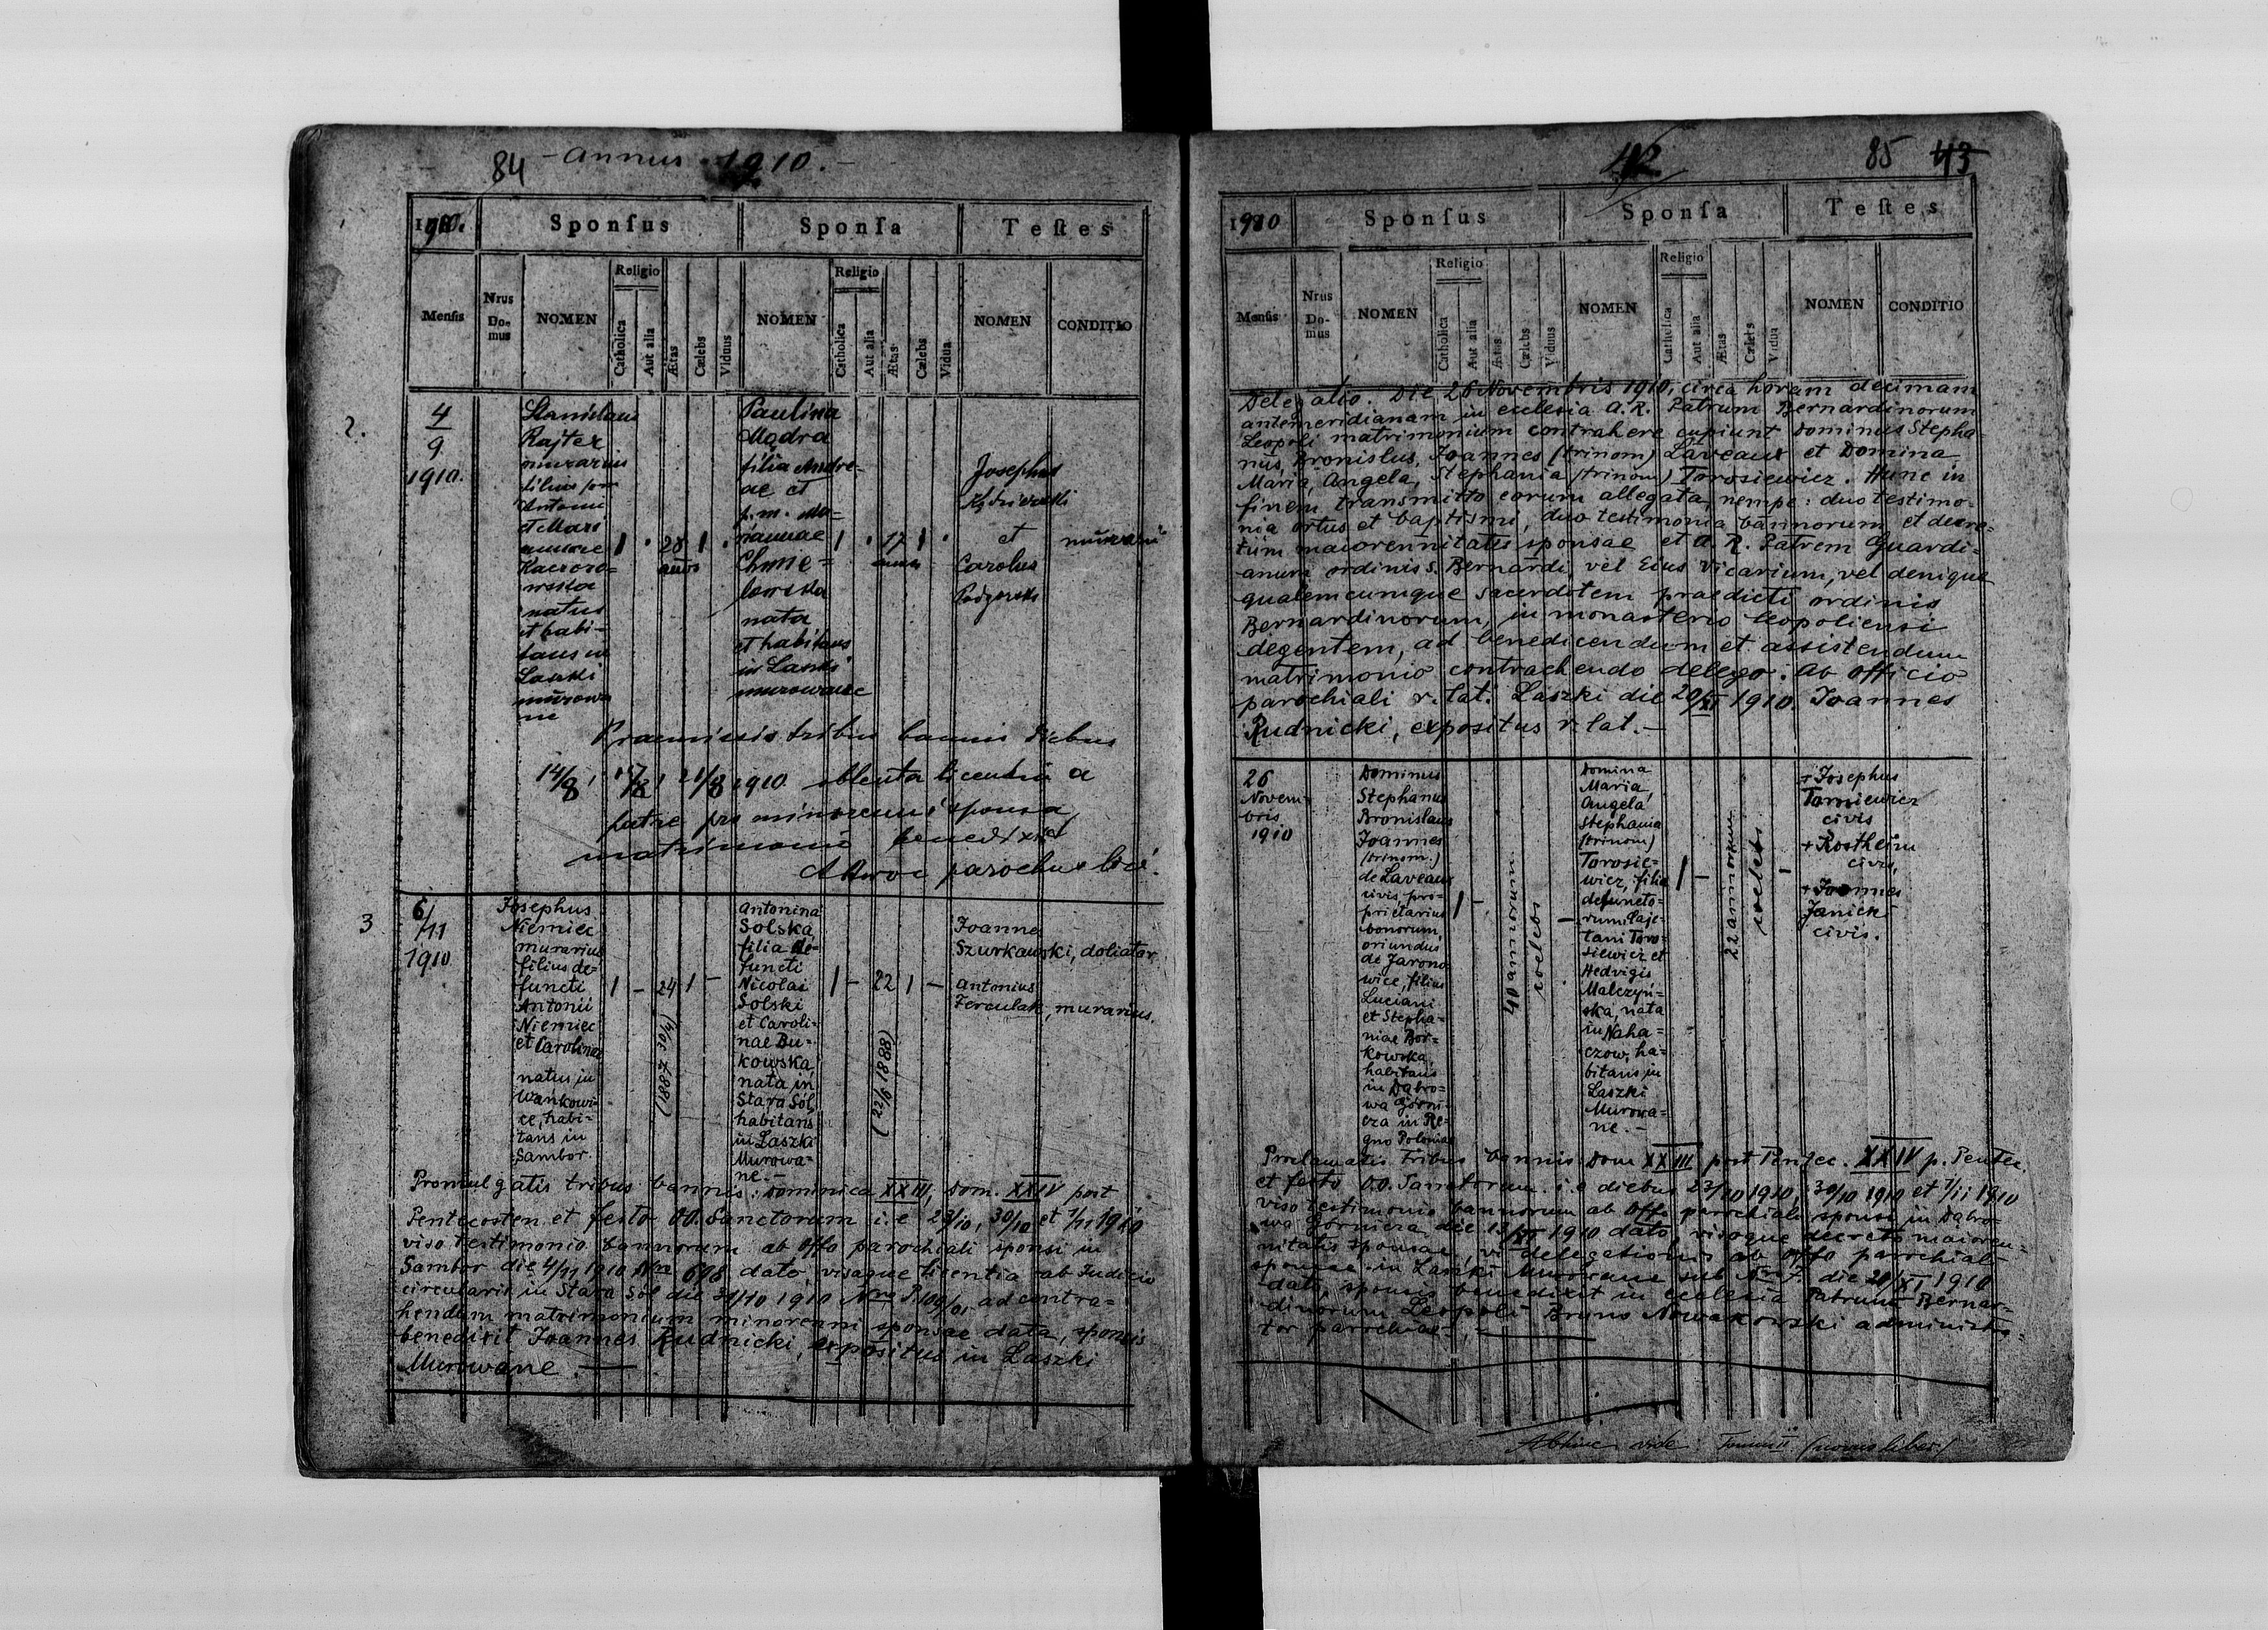 84 - Annus 1910. -
1910.
Sponsus
Sponsa
Testes
Mensis
Nrus Do- mus
NOMEN
Religio
Catholica
Aut alia
Ætas
Cœlebs
Viduus
NOMEN
Religio
Catholica
Aut alia
Ætas
Cœlebs
Vidua
NOMEN
CONDITIO
2.
4
9
1910.
Stanislaus
Rajter
murarius
filius
Antonii
et Mari
annae
Kaczoro=
wska
natus
et habi-
tans in
Laszki
murowa
ne
1 . 28 1 .
annos
Paulina
Mądra
filia Andre-
ae et
p.m. Ma=
riannae
Chmie=
lowska
nata
et habitans
in Laszki
murowane
1 . 17 1 .
annos
Josephus
et
Carolus
murarii
Praemissis tribus bannis diebus
14/8, 15/8, 21/8 1910 obtenta licentia a
patre pro minorenni sponsa
matrimonio benedixit
parochus loci.
3
6/11
1910
Josephus
Niemiec
murarius
filius de=
functi
Antonii
Niemiec
et Carolinae
natus in
Wańkowi-
ce, habi-
tans in
Sambor.
1 - 24 1 -
(1887 30/4)
Antonina
Solska,
filia de-
functi
Nicolai
Solski
et Caroli-
nae Bu-
kowska,
nata in
Stara Sól,
habitans
in Laszki
Murowa=
ne.-
1 - 22 1 -
(22/6 1888)
Joannes
Szurkawski, doliator
Antonius
Ferculak, murarius.
Promulgatis tribus bannis: Dominica XXIII, Dom. XXIV post
Pentecosten et festo OO. Sanctorum i. e 23/10, 30/10 et 1/11 1910
viso testimonio bannorum ab Offo parochiali sponsi in
Sambor die 4/11 1910 Nro 698 dato, visaque licentia ab Judicio
circularis in Stara Sól die 31/10 1910 Nro P.109/01 ad contra=
hendum matrimonium minorenni sponsae data, sponsis
benedixit Joannes Rudnicki, expositus in Laszki
Murowane. —
42
85 43
1910
Sponsus
Sponsa
Testes
Mensis
Nrus Do- mus
NOMEN
Religio
Catholica
Aut alia
Ætas
Cœlebs
Viduus
NOMEN
Religio
Catholica
Aut alia
Ætas
Cœlebs
Vidua
NOMEN
CONDITIO
Delegatio. Die 26 Novembris 1910, circa horam decimam
antemeridianam in ecclesia A.R. Patrum Bernardinorum
Leopoli matrimonium contrahere cupiunt Dominus Stepha-
nus, Bronislus, Joannes (trinom) Laveaux et Domina
Maria, Angela, Stephania (trinom) Torosiewicz. Hunc in
finem transmitto eorum allegata, nempe: duo testimo-
nia ortus et baptismi, duo testimonia bannorum et decre=
tum maiorennitatis sponsae et A. R. Patrem Guardi=
anum ordinis S. Bernardi, vel Eius Vicarium, vel denique
qualemcumque sacerdotem praedicti ordinis
Bernardinorum, in monasterio leopoliensi
degentem, ad benedicendum et assistendum
matrimonio contrahendo delego. Ab officio
parochiali r. lat. Laszki die 20/XI 1910. Joannes
Rudnicki, expositus r. lat. —
26
Novem-
bris
1910
Dominus
Stephanus
Bronislaus
Joannes
(trinom.)
de Laveaux
civis, pro-
prietarius
bonorum,
oriundus
de Jarono
wice, filius
Luciani
et Stepha-
niae Bor-
kowska,
habitans
in Dąbro=
wa Górni-
cza in Re-
gno Poloniae
1 -
40 annorum
coelebs
-
Domina
Maria,
Angela
Stephania
(trinom)
Torosie=
wicz, filia
defuncto-
rum Caje-
tani Toro-
siewicz et
Hedvigis
Malczyń-
ska, nata
in Naha=
czow, ha=
bitans in
Laszki
Murowa=
ne.-
1 -
22 annorum
coelebs
-
+ Josephus
Torosiewicz
civis
+ Rostheim
civis,
+ Joannes
Janick
civis.
Proclamatis tribus bannis Dom XXIII post Pentec. XXIV p. Pentec.
et festo O.O. Sanctorum i.e diebus 23/10 1910, 30/10 1910 et 1/11 1910
viso testimonio bannorum ab Offo parochiali sponsi in Dąbro=
wa Górnicza die 13/XI 1910 dato, visoque decreto maioren=
nitatis sponsae, vi delegationis ab offo parochiali
sponsae in Laszki Murowane sub Nro 7. die 20/XI 1910
data, sponsis benedixit in ecclesia Patrum Bernar-
dinorum Leopoli Bruno Nowakowski administra=
tor parochiae. —
Abhinc vide: Tomum II (novus liber)